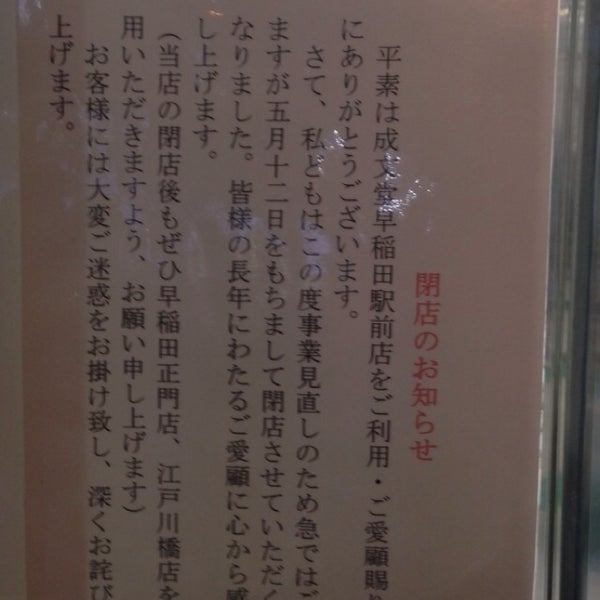 閉店のお知らせ
平素は成文堂早稲田駅前店をご利用・ご愛顧賜り
にありがとうございます。
さて、私どもはこの度事業見直しのため急ではご
ますが五月十二日をもちまして閉店させていただく
なりました。皆様の長年にわたるご愛顧に心から感
し上げます。
(当店の閉店後もぜひ早稲田正門店、江戸川橋店を
用いただきますよう、お願い申し上げます)
お客様には大変ご迷惑をお掛け致し、深くお詫び
上げます。